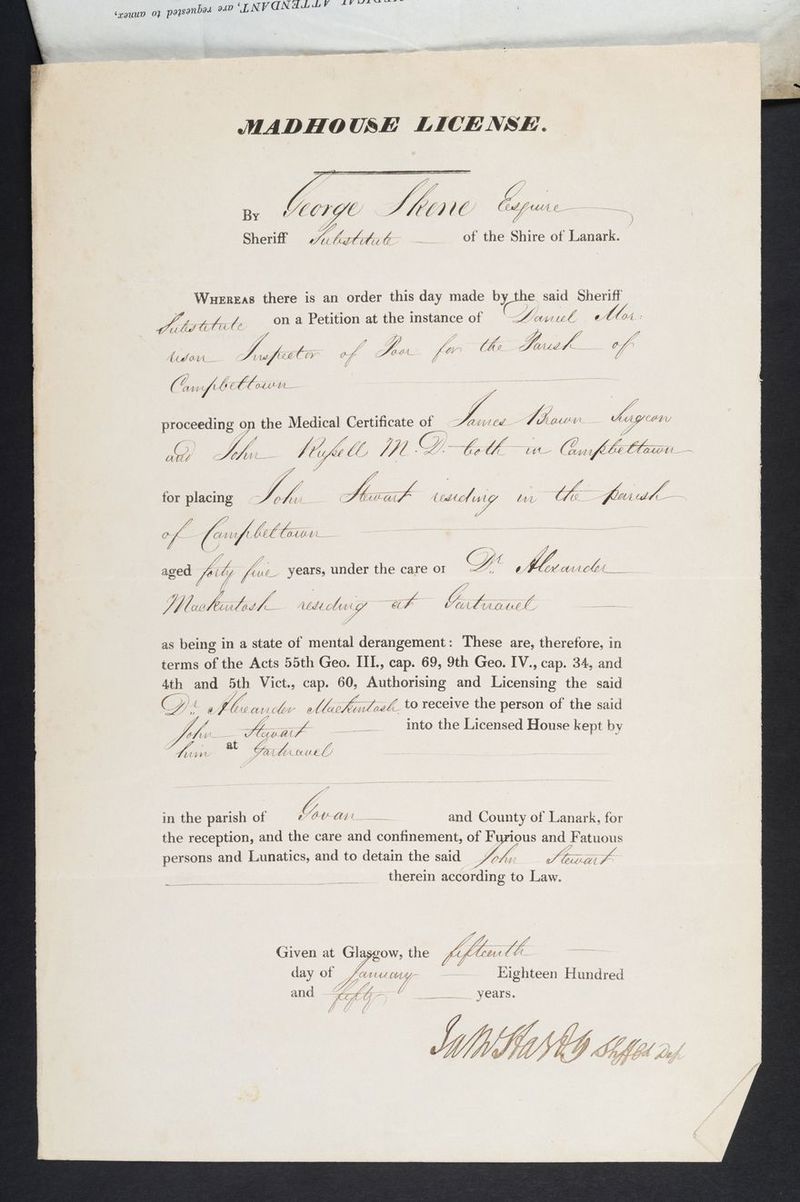 ATTENDANT, are requested to annex,
MADHOUSE LICENSE.
By George Skene Esquire
Sheriff Substitute of the Shire of Lanark.
Whereas there is an order this day made by the said Sheriff
Substitute on a Petition at the instance of Daniel Mor:
rison Inspector of Poor for the Parish of
Campbeltown
proceeding on the Medical Certificate of James Brown Surgeon
and John Russell M.D. both in Campbeltown
for placing John Stewart residing in the parish
of Campbeltown
aged forty five years, under the care of Dr. Alexander
Mackintosh residing at Gartnavel
as being in a state of mental derangement: These are, therefore, in
terms of the Acts 55th Geo. III., cap. 69, 9th Geo. IV., cap. 34, and
4th and 5th Vict., cap. 60, Authorising and Licensing the said
Dr. Alexander Mackintosh to receive the person of the said
John Stewart into the Licensed House kept by
him at Gartnavel
in the parish of Govan and County of Lanark, for
the reception, and the care and confinement, of Furious and Fatuous
persons and Lunatics, and to detain the said John Stewart
therein according to Law.
Given at Glasgow, the fifteenth
day of January Eighteen Hundred
and fifty years.
Dep